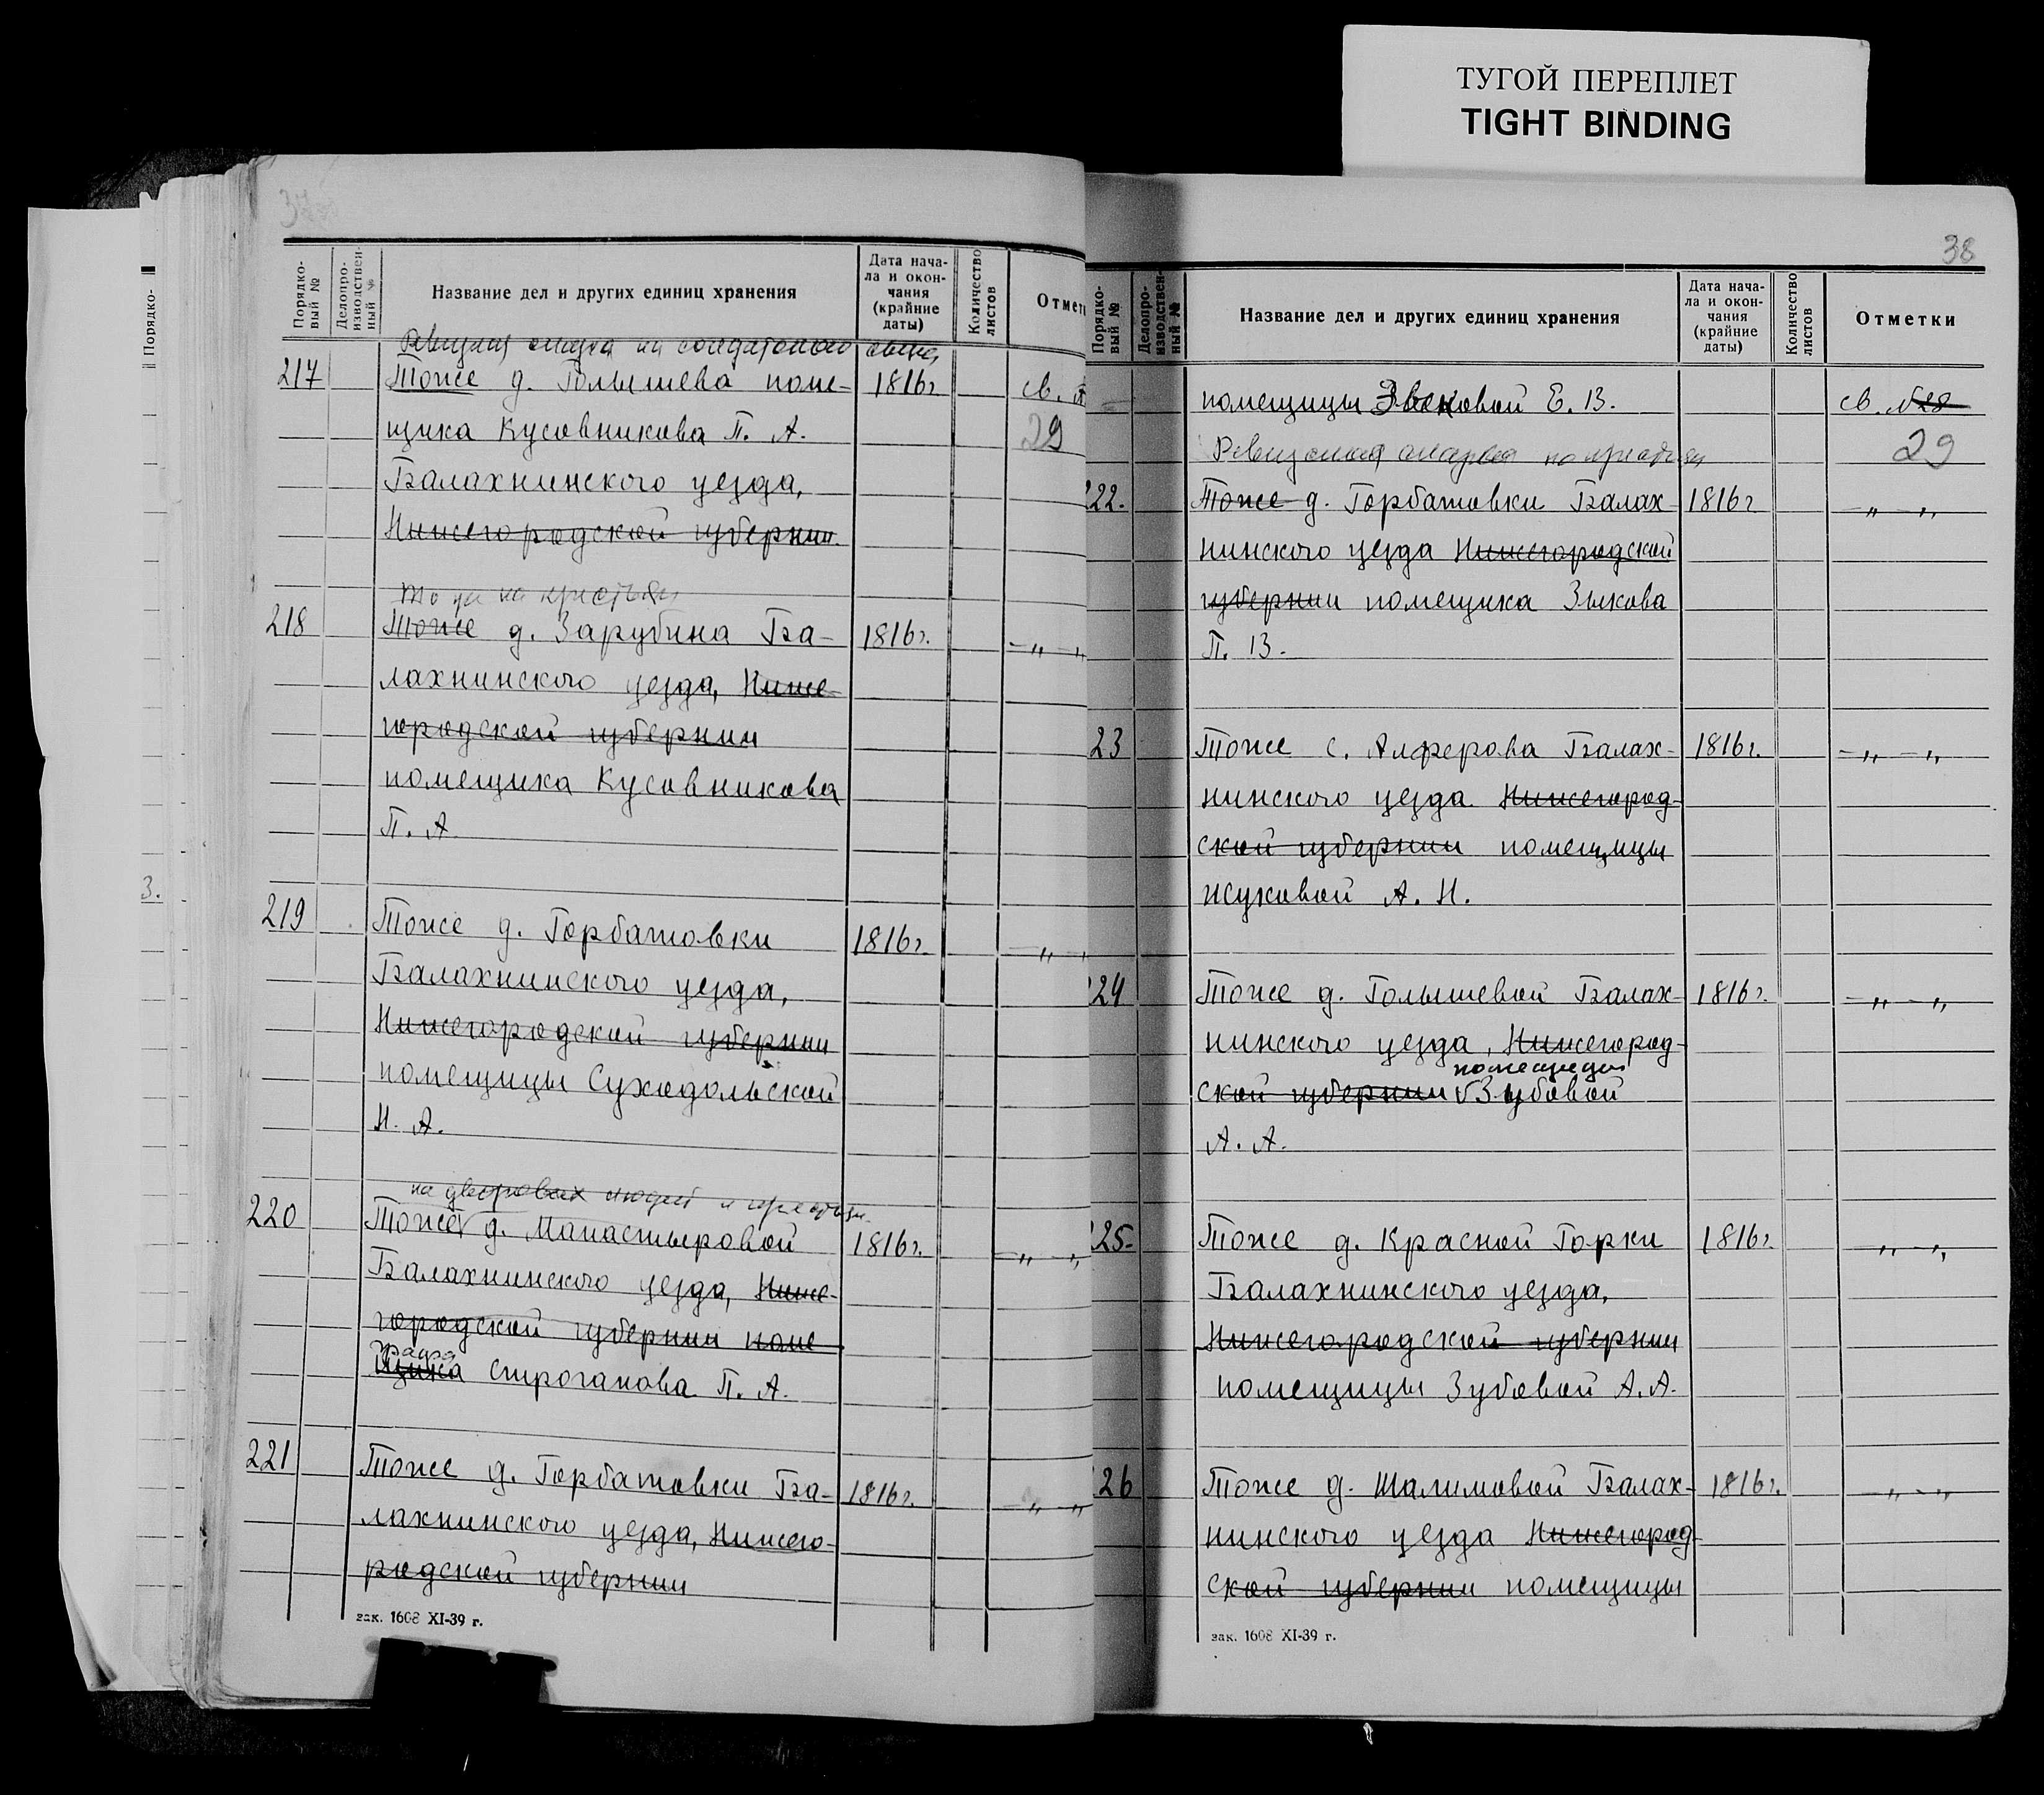 ТУГОЙ ПЕРЕПЛЕТ
TIGHT BINDING
37
Порядко-
вый №
Делопро-
изводствен-
ный №
Название дел и других единиц хранения
Дата нача-
ла и окон-
чания
(крайние
даты)
Количество
листов
Отметк
Ревизская сказка на солдатского сына
217 Тоже д. Голышева поме- 1816г. св.
щика Кусовникова П. А. 29
Балахнинского уезда,
Нижегородской губернии
То же на крестьян
218 Тоже д. Зарубина Ба- 1816г. -„-„
лахнинского уезда, Ниже-
городской губернии
помещика Кусовникова
П. А
219 Тоже д. Горбатовки 1816г. -„-
Балахнинского уезда,
Нижегородской губернии
помещицы Суходольской
Н. А.
на дворовых людей и крестьян
220 Тоже д. Манастыровой 1816г. -„-„
Балахнинского уезда, Ниже-
городской губернии поме-
графа
щика Строганова П. А.
221 Тоже д. Горбатовки Ба- 1816г. -„-„
лахнинского уезда, Нижего-
родской губернии
зак. 1608 XI-39 г.
Порядко-
3.
38
Порядко-
вый №
Делопро-
изводствен-
ный №
Название дел и других единиц хранения
Дата нача-
ла и окон-
чания
(крайние
даты)
Количество
листов
Отметки
помещицы Е. В. св. №28
Ревизская сказка на крестьян 29
22. Тоже д. Горбатовки Балах- 1816г -„-„
нинского уезда Нижегородской
губернии помещика Зыкова
П. В.
23 Тоже с. Алферова Балах- 1816г. -„-„
нинского уезда Нижегород-
ской губернии помещицы
Жуковой А. Н.
24 Тоже д. Голышевой Балах- 1816г. -„-„
нинского уезда, Нижегород-
помещицы
ской губернии √ Зубовой
А. А.
25. Тоже д. Красной Горки 1816г. „-„
Балахнинского уезда,
Нижегородской губернии
помещицы Зубовой А. А.
26 Тоже д. Шалимовой Балах- 1816г. -„-„
нинского уезда Нижегород-
ской губернии помещицы
зак. 1608 XI-39 г.